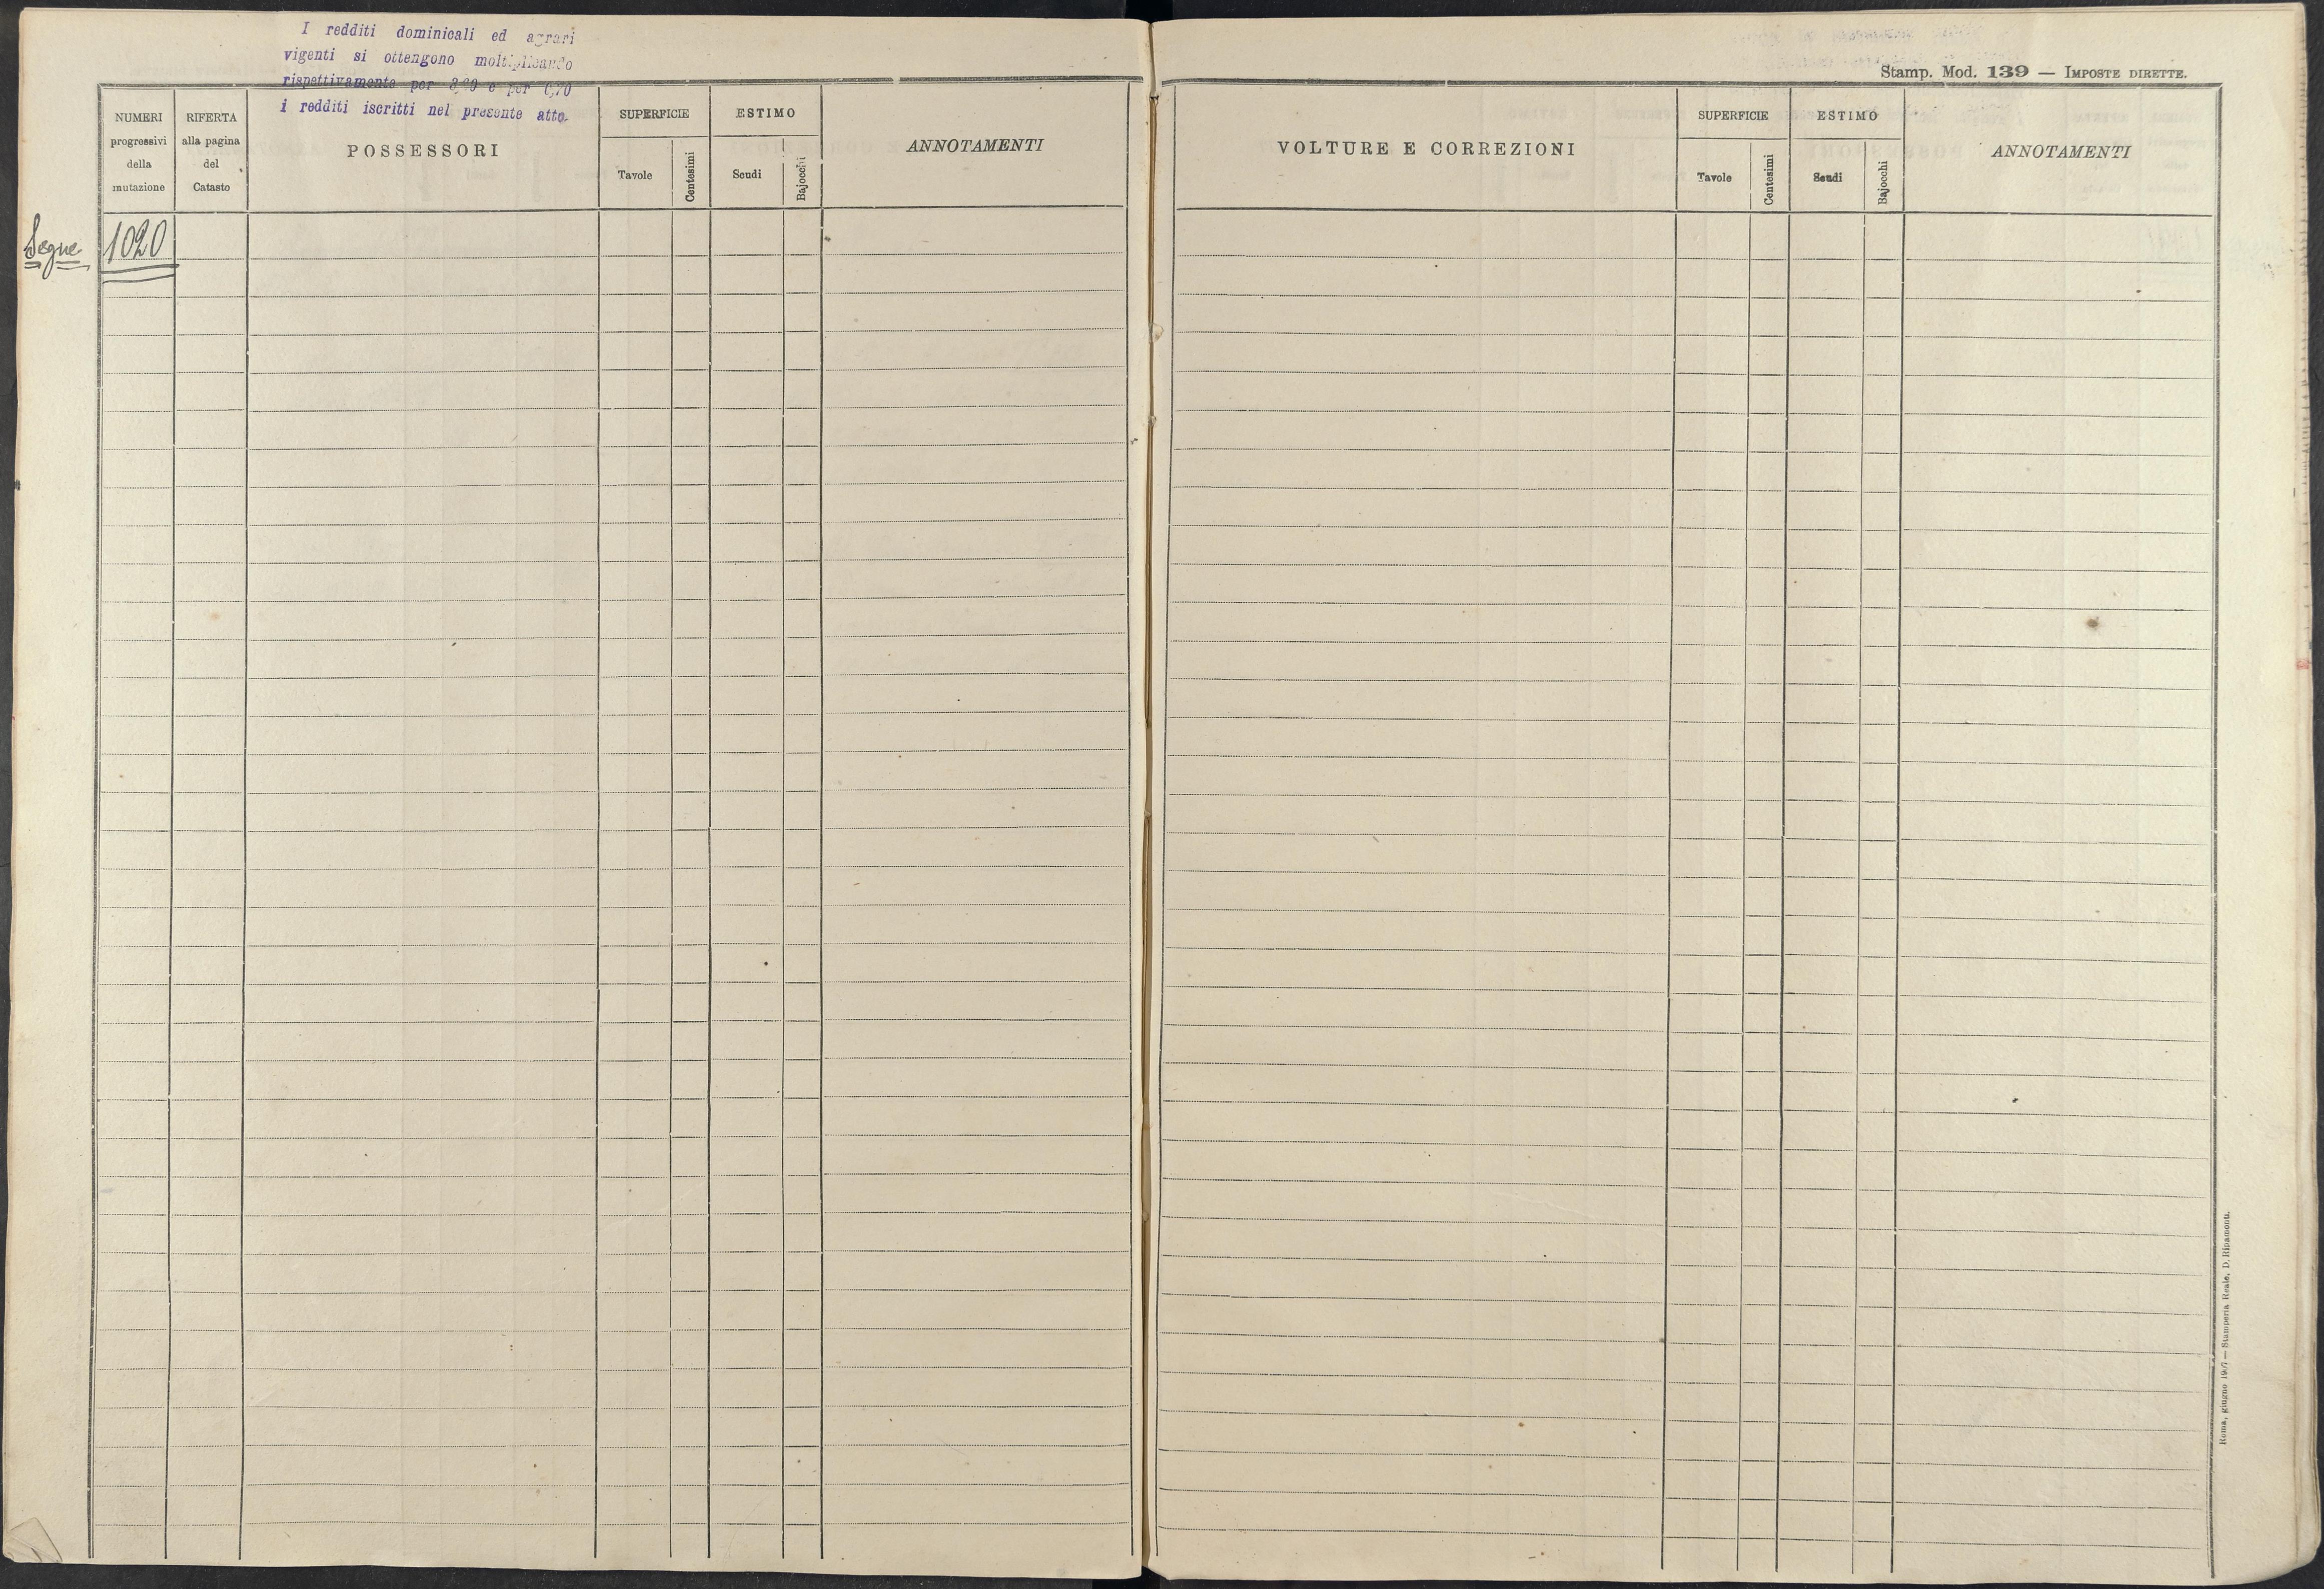 I redditi dominicali ed agrari
vigenti si ottengono moltiplicando
rispettivamente per e per
i redditi iscritti nel presente atto.
NUMERI
progressivi
della
mutazione
RIFERTA
alla pagina
del
Catasto
POSSESSORI
SUPERFICIE
Tavole
Centesimi
ESTIMO
Scudi
Bajocchi
ANNOTAMENTI
Segue 1020
Stamp. Mod. 139 — IMPOSTE DIRETTE.
VOLTURE E CORREZIONI
SUPERFICIE
Tavole
Centesimi
ESTIMO
Scudi
Bajocchi
ANNOTAMENTI
Roma, giugno — Stamperia Reale, D. Ripamonti.